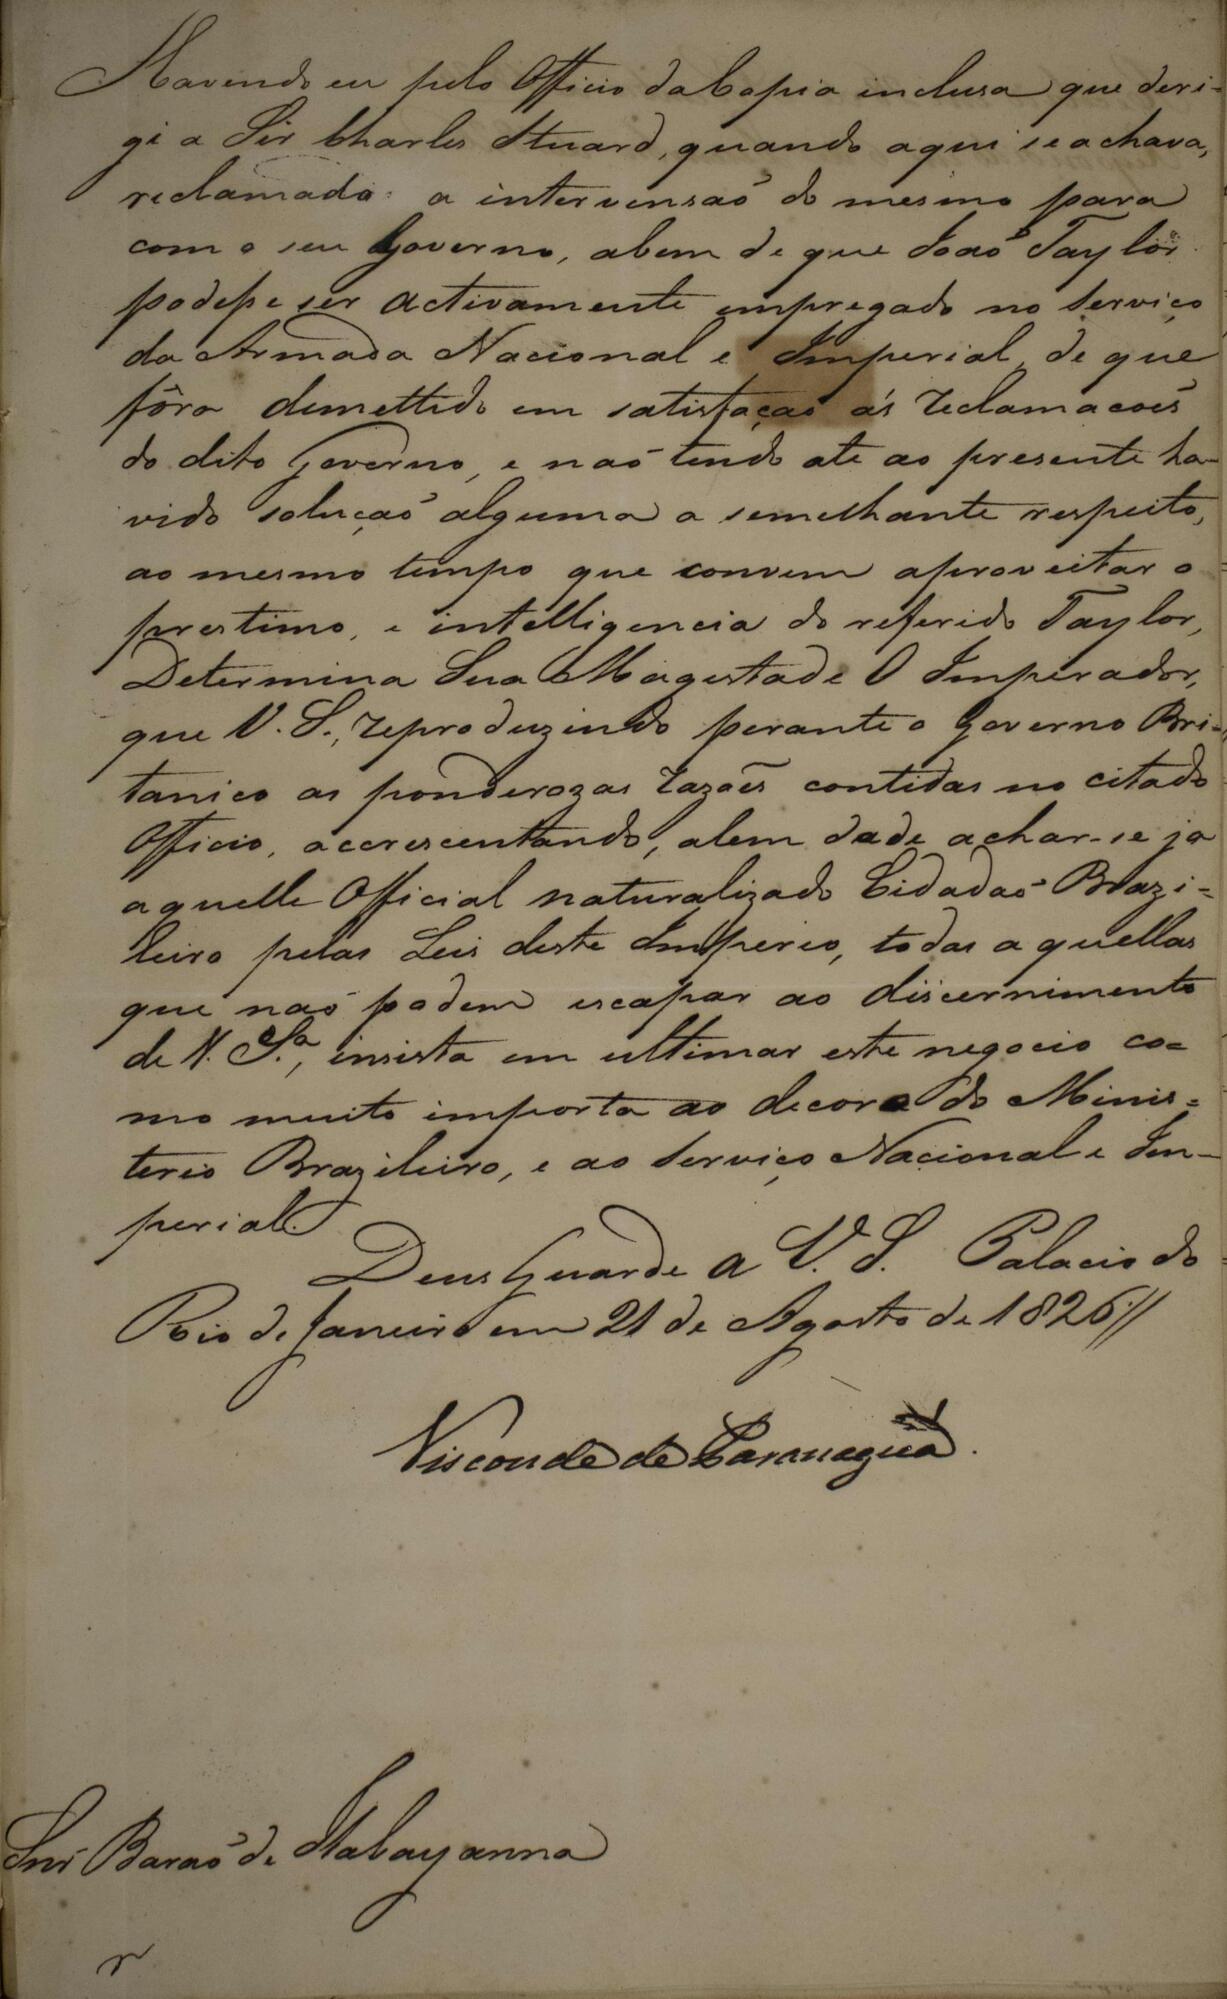 Havendo eu pelo Officio da Copia inclusa que deri-
gi a Sir Charles Stuard, quando aqui se achava,
reclamado a intervensaõ do mesmo para
com o seu Governo, abem de que Joaõ Taylor
podesse ser activamente empregado no serviço
da Armada Nacional e Imperial, de que
fôra demettido em satisfaçaõ ás reclamacoẽs
do dito Governo, e naõ tendo ate ao presente ha-
vido soluçaõ alguma a semelhante respeito,
ao mesmo tempo que convem aproveitar o
prestimo, e intelligencia do referido Taylor,
Determina Sua Magestade O Imperador,
que V. S., reproduzindo perante o Governo Bri-
tanico as ponderozas razoẽs contidas no citado
Officio, accrescentando, alem dade achar-se ja
aquelle Official naturalizado Cidadaõ Brazi=
leiro pelas Leis deste Imperio, todas aquellas
que naõ podem escapar ao discernimento
de V. S.ª, insista em ultimar este negocio co=
mo muito importa ao decoro do Minis=
terio Brazileiro, e ao serviço Nacional e Im-
perial.
Deus Guarde a V. S. Palacio do
Rio de Janeiro em 21 de Agosto de 1826//
Visconde de Paranaguá.
Snr Baraõ de Itabayanna
r